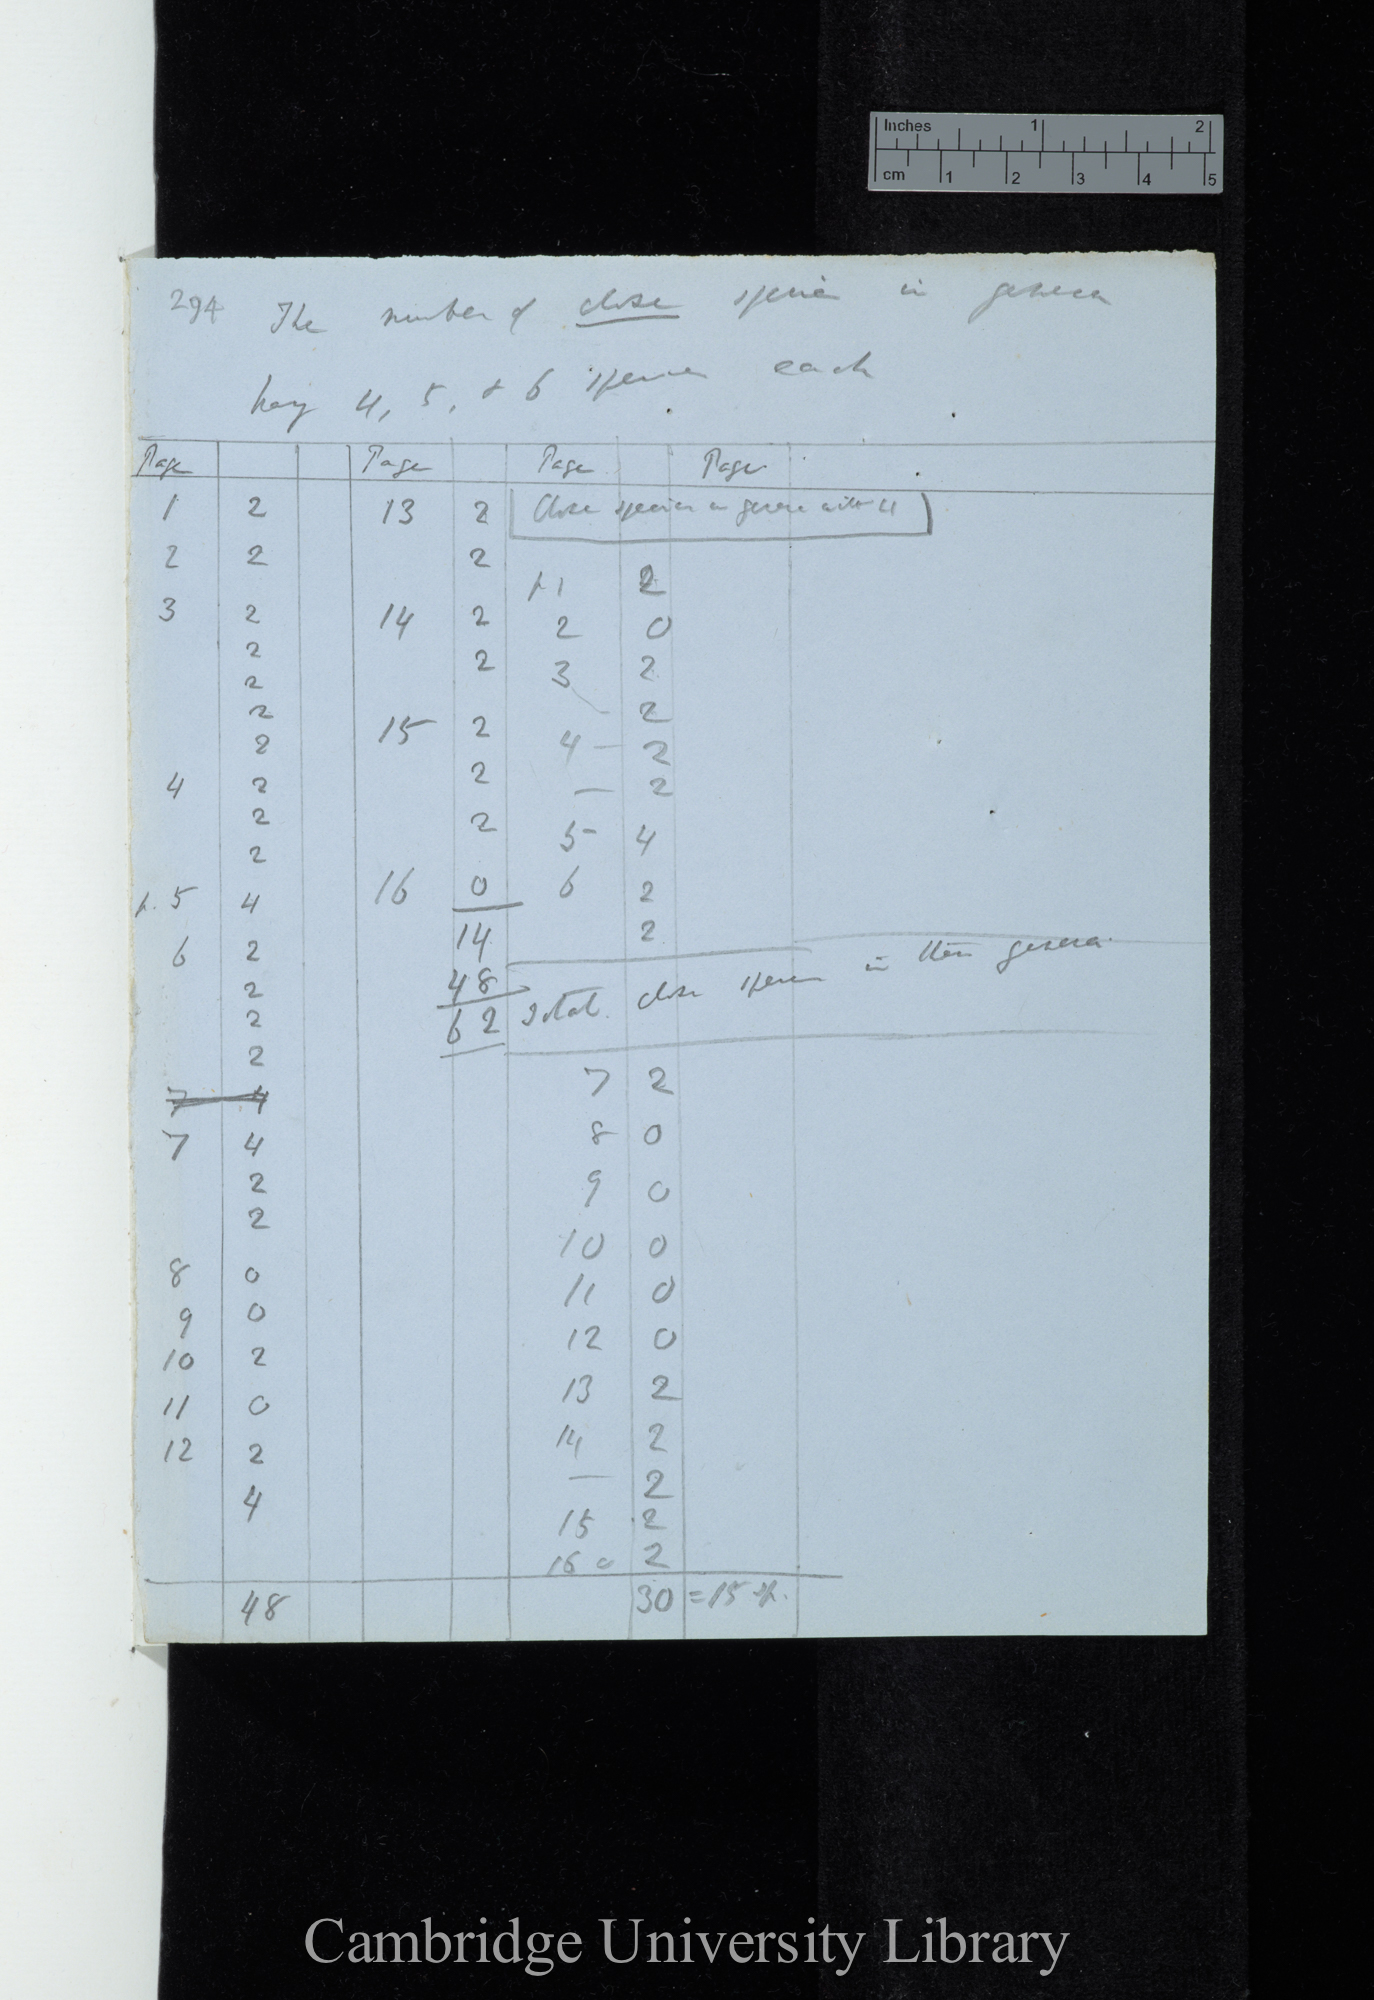 Inches 1 2
cm 1 2 3 4 5
294 The number of close species in genera
havg 4, 5, & 6 species each
Page Page Page Page
1 2 13 2 Close species in genera with 4
2 2 2
p 1 2
3 2 14 2 2 0
2 2 3 2
2
2 2
2 15 2 4 — 2
4 2 2 — 2
2 2 5 4
2
p. 5 4 16 0 6 2
6 2 14 2
2 48
2 62 Total close species in these genera
2
7 4
7 2
7 4 8 0
2 9 0
2
8 0 10 0
9 0 11 0
10 2 12 0
11 0 13 2
12 2 14 2
4 — 2
15 2
16 0 2
48 30 = 15 sp.
Cambridge University Library